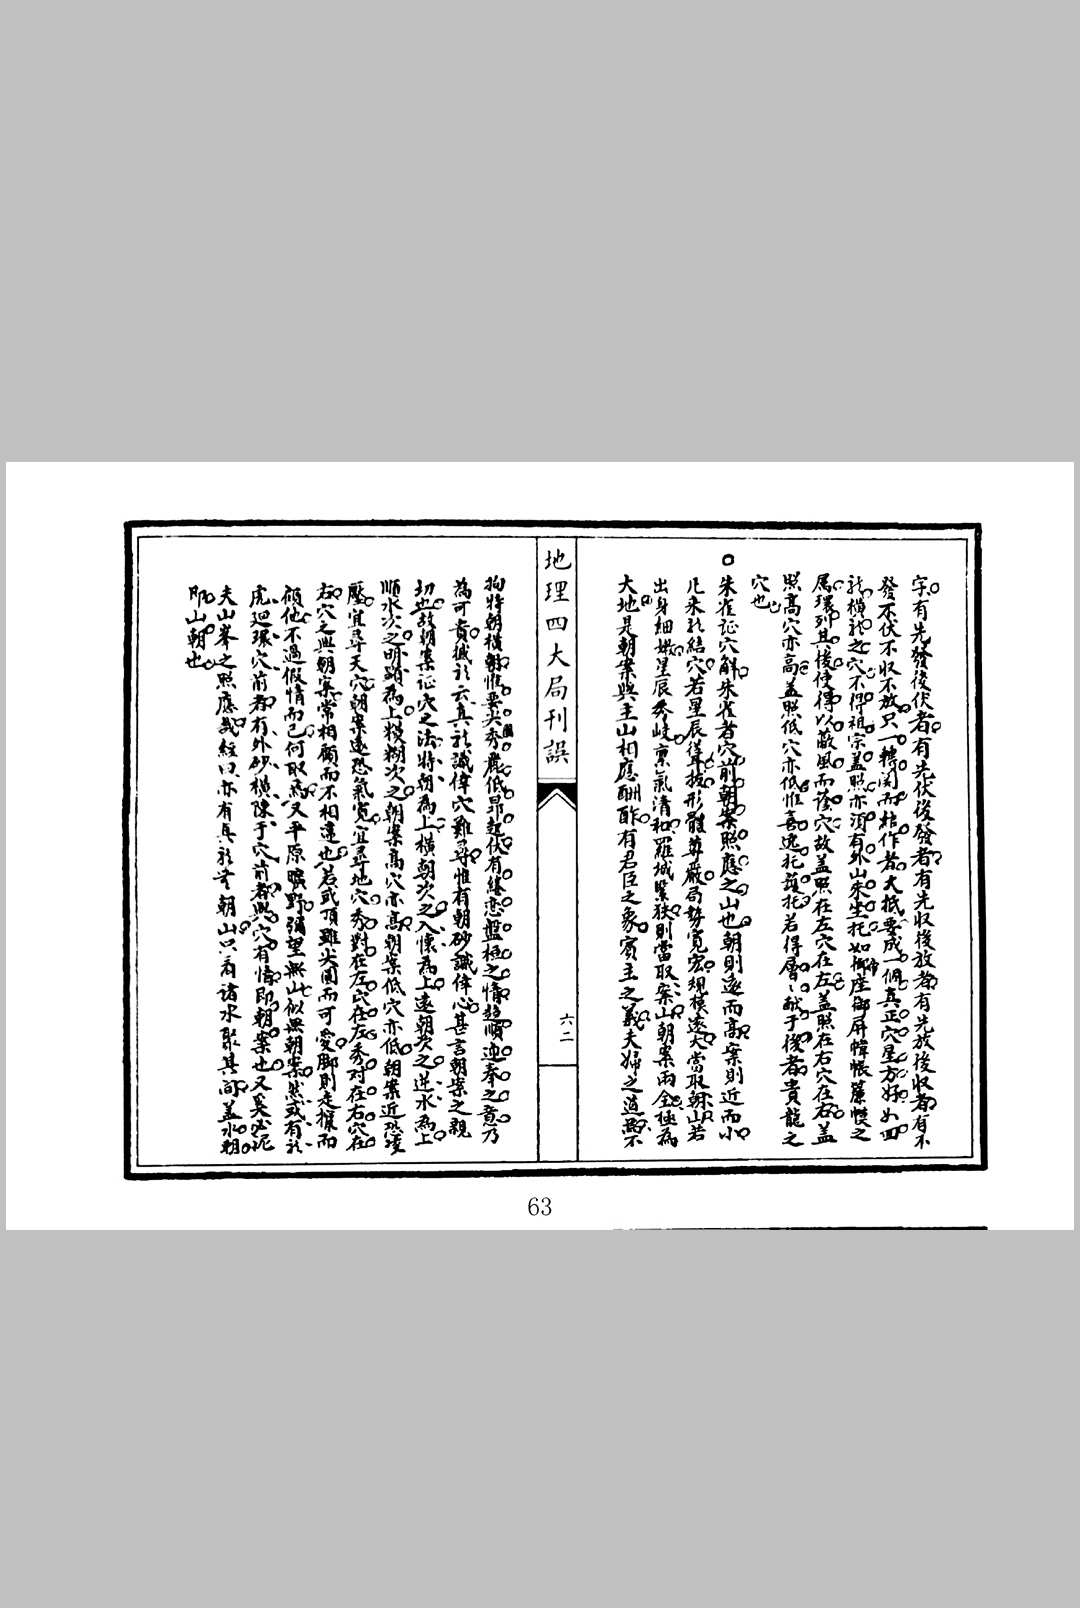 字有先發後伏者有先伏後發者有先收後放者有先放後收者有不
發不伏不收不放只一轉関而結作者大抵要成一個真正穴星方好如四
龍橫龍之穴不得祖宗盖照亦須有外山来坐托如御座御屏幃帳簾幙之
属環列其後使得以蔽風而蔭穴故盖照在左穴在左盖照在右穴在右盖
照高穴亦高盖照低穴亦低惟喜逸托護托若得層〻献于後者貴龍之
穴也
○朱雀证穴解朱雀者穴前朝案照應之山也朝則遠而高案則近而小
凢来龍結穴若星辰聳拔形體尊嚴局势寛宏規模遠大當取朝山若
出身細嫩星辰秀岐氣清和羅城緊狭則當取案山朝案兩全極為
大地是朝案與主山相應酬酢有君臣之象賓主之義夫婦之道焉不
地理四大局刊誤
六二
拘特朝橫朝惟要尖秀麗低昂起伏有綣恋盤桓之情趋順迎奉之意乃
為可貴摅於云真龍識倖穴難尋惟有朝砂識倖心甚言朝案之親
切也故朝案证穴之法特朝為上橫朝次之入懐為上遠朝次之逆水為上
順水次之明顕為上模糊次之朝案高穴亦高朝案低穴亦低朝案近恐凌
壓宜尋天穴朝案遠恐氣寛宜尋地穴秀對在左穴在左秀对在右穴在
右穴之與朝案常相顧而不相違也若或頂雖尖圓而可愛脚則走攛而
顧他不過假情而已何取焉又平原曠野彌望無山似無朝案然或有於
虎廻環穴前者有外砂横陳于穴前者與穴有情即朝案也又奚必泥
夫山峯之照應哉経曰亦有真龍無朝山只看諸水聚其间盖水朝
即山朝也
63